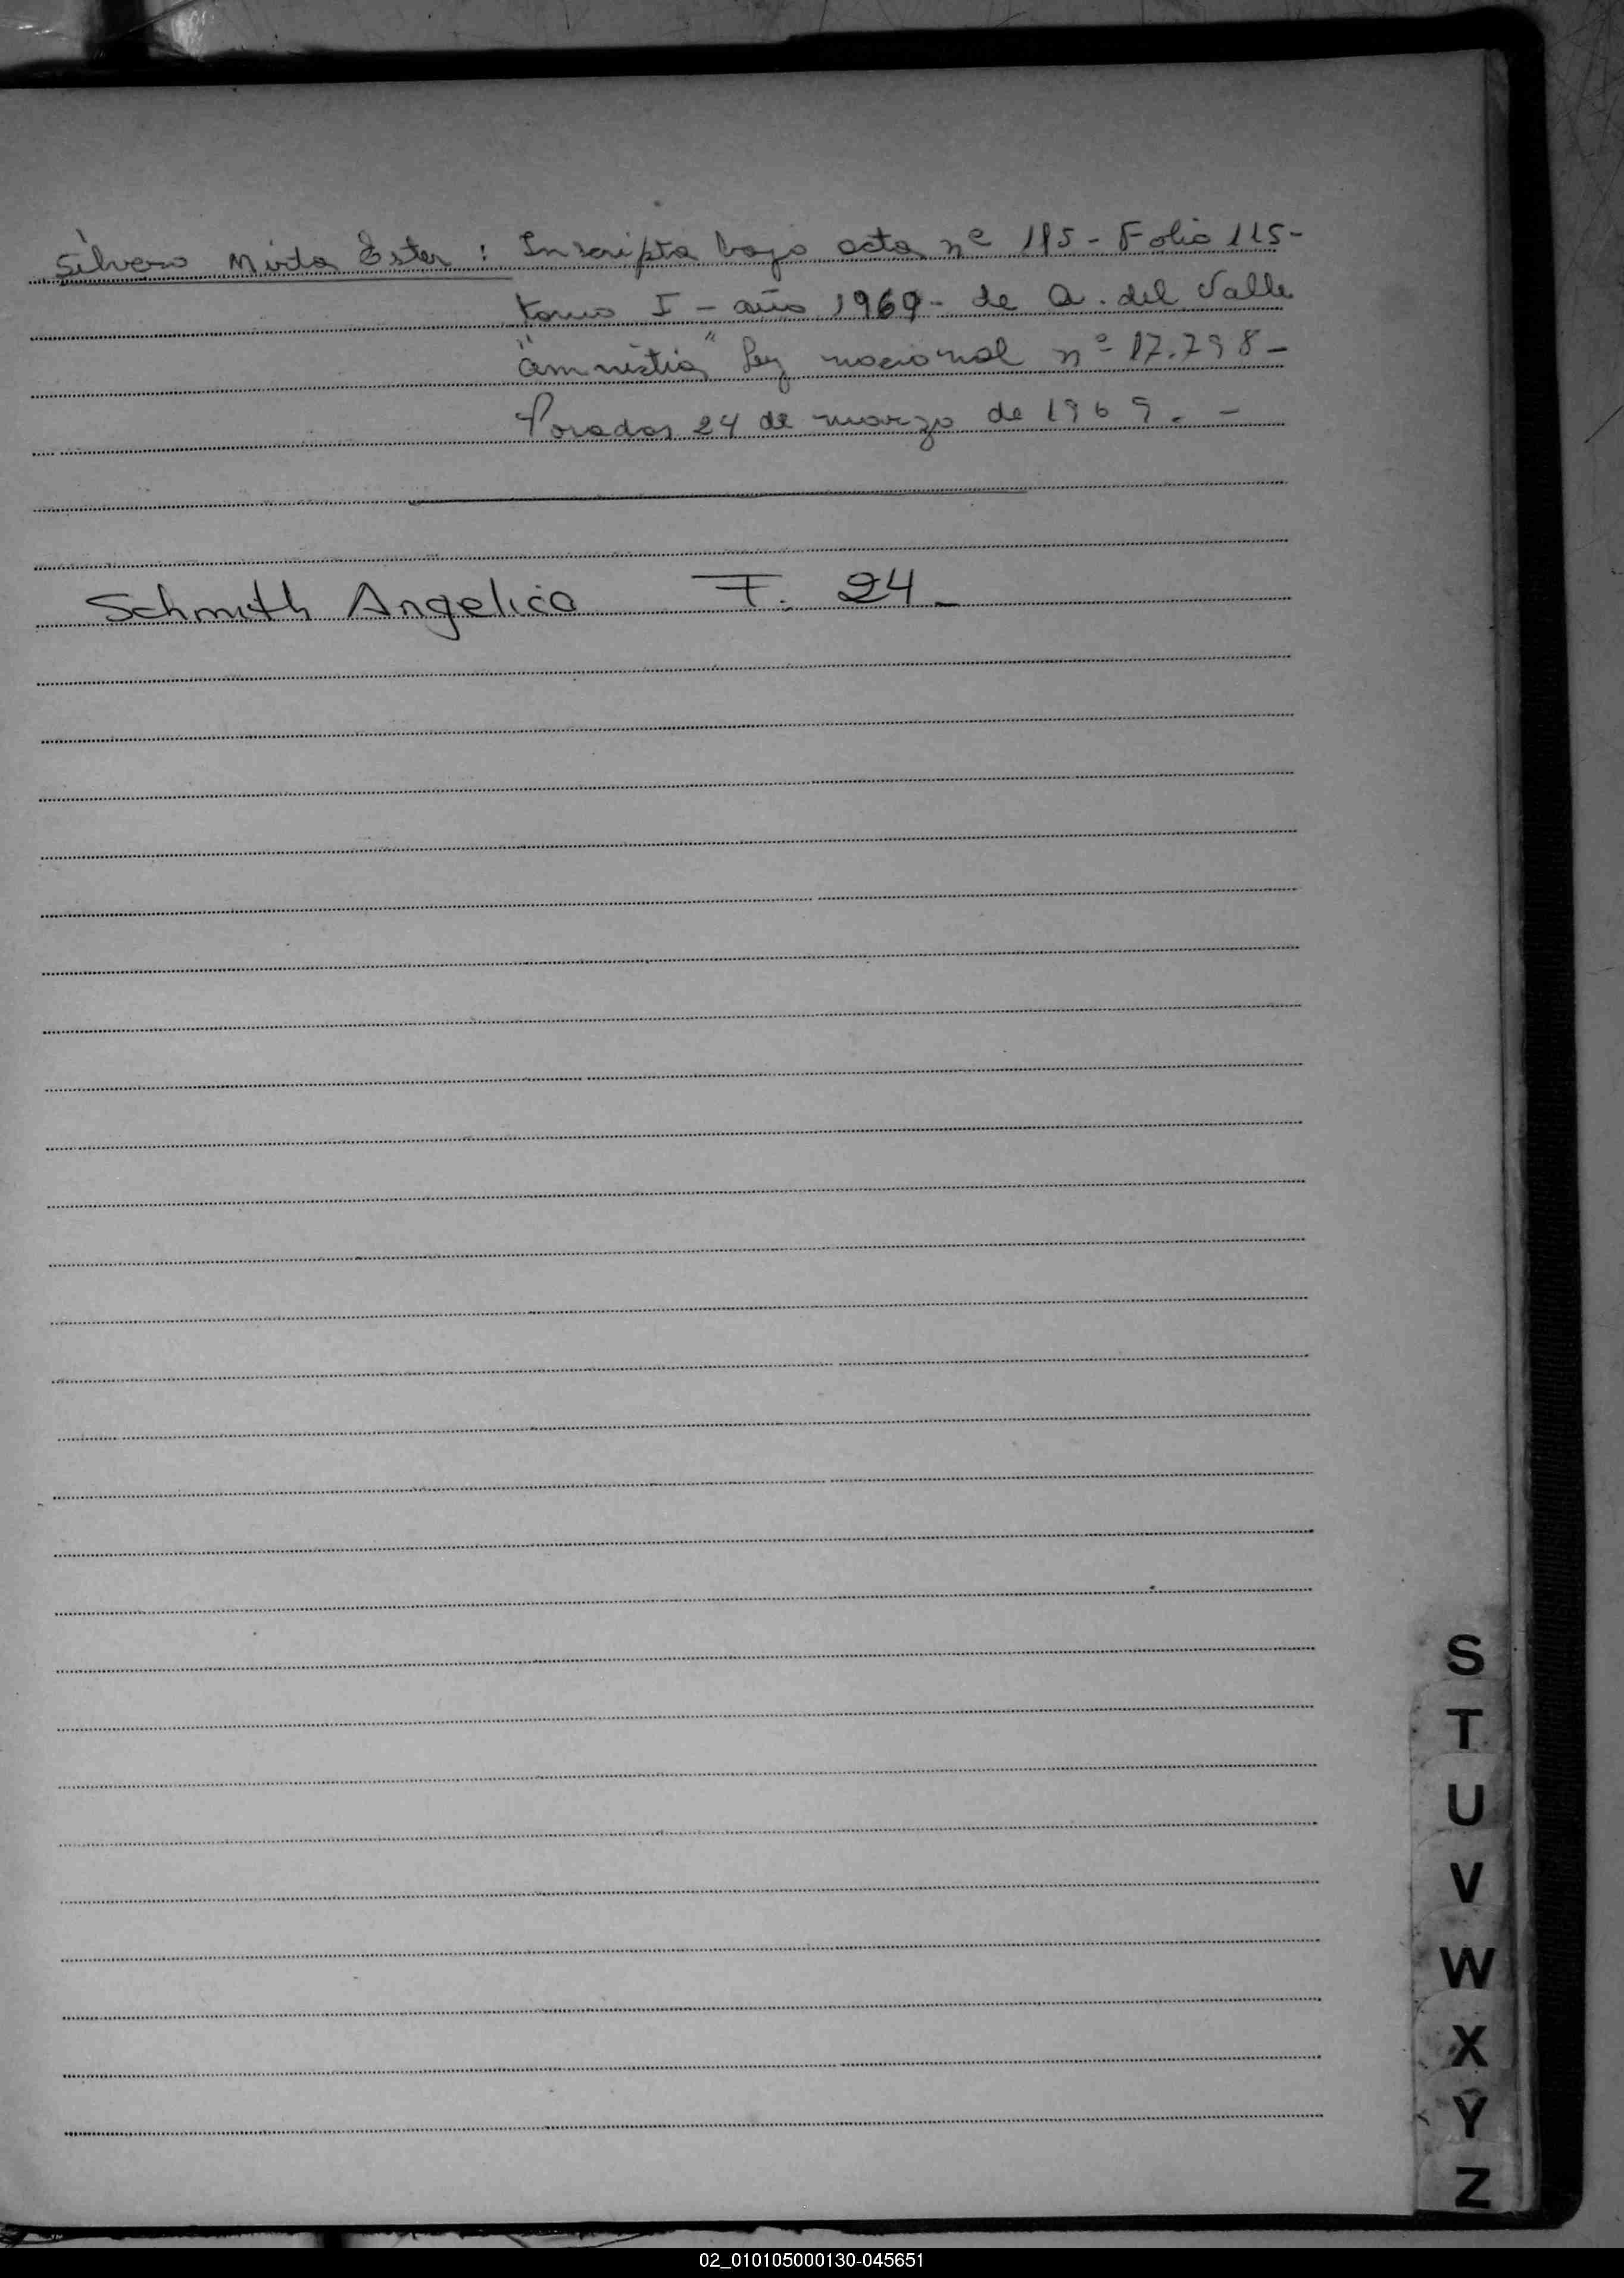 Silvero Mirta Ester : Inscripta bajo acta nº 115 - Folio 115 -
tomo I - año 1969 - de A. del Valle
"amnistia" ley nacional nº 17.798 -
Posadas 24 de marzo de 1969. -
Schmith Angelica F. 24 -
S
T
U
V
W
X
Y
Z
02_010105000130-045651